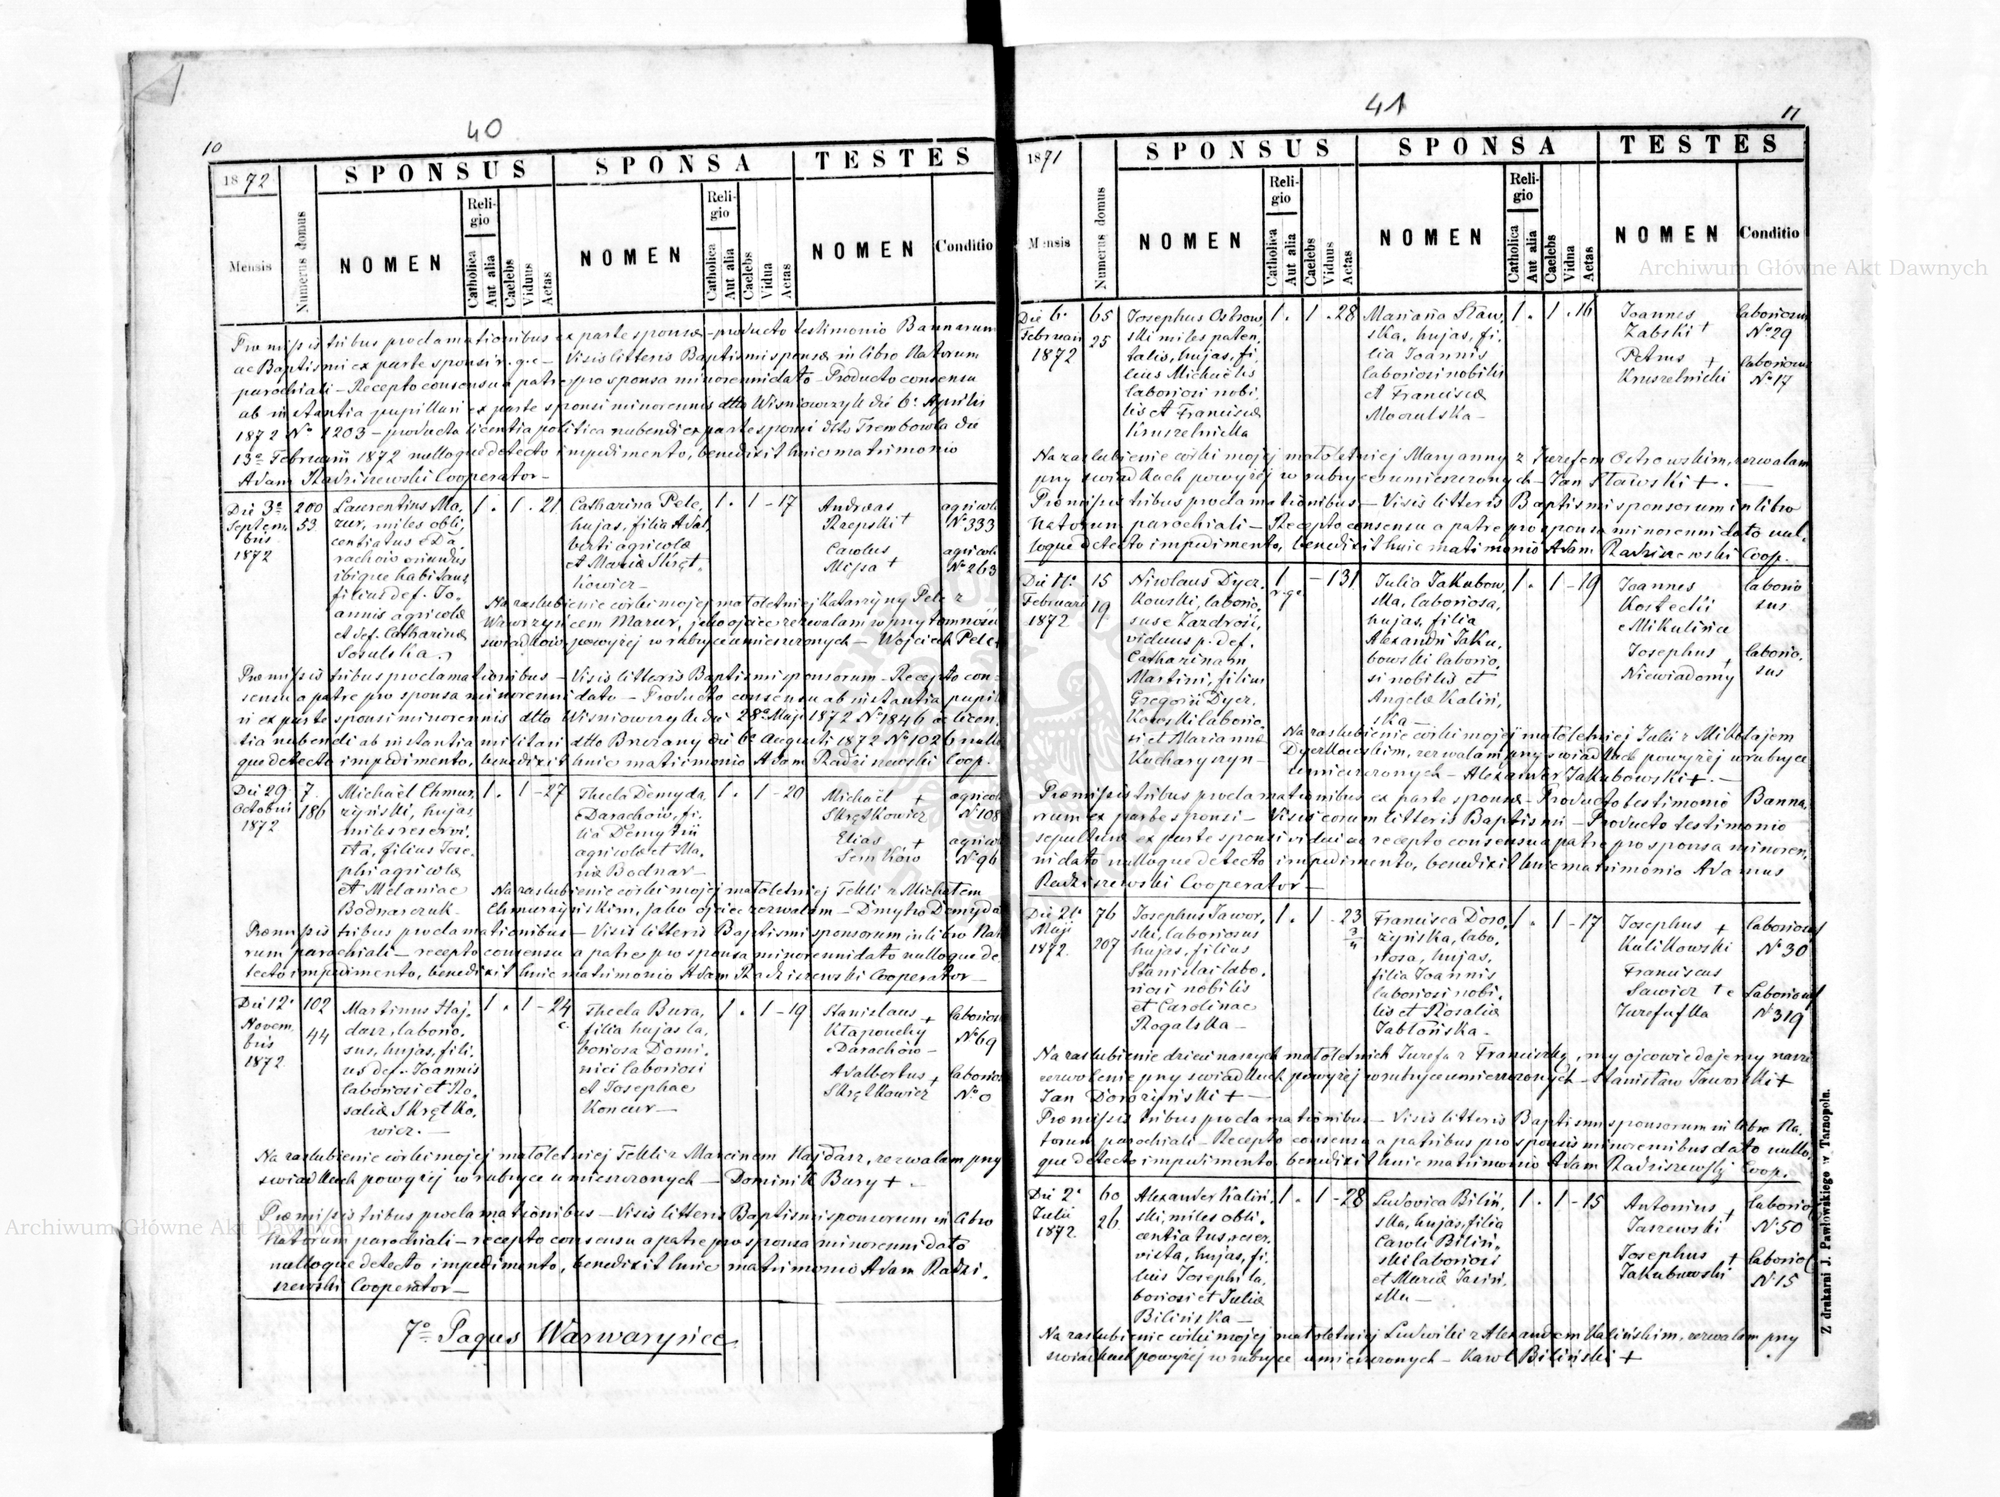 40
10
1872
SPONSUS
SPONSA
TESTES
Mensis
Numerus domus
NOMEN
Religio
Catholica
Aut alia
Caelebs
Viduus
Aetas
NOMEN
Religio
Catholica
Aut alia
Caelebs
Vidua
Aetas
NOMEN
Conditio
Praemissis tribus proclamationibus ex parte sponsae – producto testimonio Bannorum
ac Baptismi ex parte sponsi r. g. c – Visis litteris Baptismi sponsae in libro Natorum
parochiali – Recepto consensu a patre pro sponsa minorenni dato – Producto consensu
ab instantia pupillari ex parte sponsi minorennis dtto Wiśniowczyk die 6a Aprilis
1872 No 1203 – producta licentia politica nubendi ex parte sponsi dtto Trembowla die
13a Februarii 1872 nulloque detecto impedimento, benedixit huic matrimonio
Adam Radziszewski Cooperator –
Die 3a
Septem
bris
1872
200
53
Laurentius Ma,
zur, miles obli,
centiatus e Da,
rachów oriundus
ibique habitans,
filius def. Jo,
annis agricolae
et def. Catharinae
Sosulska
1 . 1 . 21
Catharina Pele,
hujas, filia Adal,
berti agricolae
et Mariae Skręt,
kowicz –
1 . 1 – 17
Andreas
Rzepski +
Carolus
Missa +
agricola
No 333
agricola
No 263
Na zaślubienie córki mojej małoletniej Katarzyny Pele z
Wawrzyńcem Mazur, jako ojciec zezwalam w przytomności
świadków powyżej w rubryce umieszczonych – Wojciech Pele +
Praemissis tribus proclamationibus – Visis litteris Baptismi sponsorum – Recepto con,
sensu a patre pro sponsa minorenni dato – Producto consensu ab instantia pupil
ri ex parte sponsi minorennis dtto Wiśniowczyk die 28a Maji 1872 No 1846 ac licen,
tia nubendi ab instantia militari dtto Brzeżany die 6a Augusti 1872 No 1026 nullo
que detecto impedimento, benedixit huic matrimonio Adam Radziszewski Coop.
Die 29
Octobris
1872
7
186
Michaël Chmu,
rzyński, hujas,
miles reservi,
sta, filius Jose,
phi agricolae
et Melaniae
Bodnarczuk
1 . 1 – 27
Thecla Demyda,
e Darachów, fi,
lia Demytrii
agricolae et Ma,
riae Bodnar –
1 . 1 – 20
Michaël +
Skrętkowicz
Elias +
Semków
agricola
No 108
agricola
No 96
Na zaślubienie córki mojej małoletniej Tekli z Michałem
Chmurzyńskim, jako ojciec zezwalam – Dmytro Demyda
Praemissis tribus proclamationibus – Visis litteris Baptismi sponsorum in libro Nato
rum parochiali – recepto consensu a patre pro sponsa minorenni dato nulloque de,
tecto impedimento, benedixit huic matrimonio Adam Radziszewski Cooperator –
Die 12a
Novem
bris
1872
102
44
Martinus Haj,
dasz, laborio,
sus, hujas, fili,
us def. Joannis
laboriosi et Ro,
saliae Skrętko,
wicz. –
1 . 1 – 24
Thecla Bura,
filia hujas la,
boriosa Domi,
nici laboriosi
et Josephae
Koncur –
1 . 1 – 19
Stanislaus +
Kłapouchy
e Darachów –
Adalbertus +
Skrętkowicz
laborios
No 69
laborios
No 0
Na zaślubienie córki mojej małoletniej Tekli z Marcinem Hajdasz, zezwalam przy
świadkach powyżej w rubryce umieszczonych – Dominik Bury + –
Praemissis tribus proclamationibus – Visis litteris Baptismi sponsorum in libro
Natorum parochiali – recepto consensu a patre pro sponsa minorenni dato
nulloque detecto impedimento, benedixit huic matrimonio Adam Radzi,
szewski Cooperator –
7o Pagus Warwaryńce
41
11
1871
SPONSUS
SPONSA
TESTES
Mensis
Numerus domus
NOMEN
Religio
Catholica
Aut alia
Caelebs
Viduus
Aetas
NOMEN
Religio
Catholica
Aut alia
Caelebs
Vidua
Aetas
NOMEN
Conditio
Die 6a
Februarii
1872
65
25
Josephus Ostrow,
ski miles paten,
talis, hujas, fi,
lius Michaëlis
laboriosi nobi,
lis et Franciscae
Kruszelnicka
1 . 1 . 28
Mariana Staw,
ska, hujas, fi,
lia Joannis
laboriosi nobilis
et Franciscae
Moczulska –
1 . 1 . 16
Joannes
Zabski +
Petrus +
Kruszelnicki
laboriosus
No 29
laboriosus
No 17
Na zaślubienie córki mojej małoletniej Maryanny z Józefem Ostrowskim, zezwalam
przy świadkach powyżej w rubryce umieszczonych – Jan Stawski + . –
Praemissis tribus proclamationibus – Visis litteris Baptismi sponsorum in libro
Natorum parochiali – Recepto consensu a patre pro sponsa minorenni dato nul,
loque detecto impedimento, benedixit huic matrimonio Adam Radziszewski Coop.
Die 11a
Februarii
1872
15
19
Nicolaus Dycz,
kowski, laborio,
sus e Zazdrość,
viduus p. def.
Catharinam
Martini, filius
Gregorii Dycz,
kowski laborio,
si et Mariannae
Kucharyszyn –
1
r. gc
– 1 31
Julia Jakubow,
ska, laboriosa,
hujas, filia
Alexandri Jaku,
bowski laborio,
si nobilis et
Angelae Kaliń,
ska –
1 . 1 – 19
Joannes
Kostecki
e Mikulińce
Josephus +
Niewiadomy
laborio
sus
laborio,
sus
Na zaślubienie córki mojej małoletniej Julii z Mikołajem
Dyczkowskim, zezwalam przy świadkach powyżej w rubryce
umieszczonych – Alexander Jakubowski + . –
Praemissis tribus proclamationibus ex parte sponsae – Producto testimonio Banno,
rum ex parte sponsi – Visis eorum litteris Baptismi – Producto testimonio
sepulturae ex parte sponsi vidui ac recepto consensu a patre pro sponsa minoren,
ni dato nulloque detecto impedimento, benedixit huic matrimonio Adamus
Radziszewski Cooperator –
Die 21a
Maji
1872
76
207
Josephus Jawor,
ski, laboriosus
hujas, filius
Stanislai labo,
riosi nobilis
et Carolinae
Rogalska –
1 . 1 – 23
3/4
Francisca Doro,
żyńska, labo,
riosa, hujas,
filia Joannis
laboriosi nobi,
lis et Rosaliae
Jabłońska –
1 . 1 – 17
Josephus +
Kulikowski
Franciscus
Sawicz + e
Juzefufka
laboriosus
No 30
Laboriosus
No 319
Na zaślubienie dzieci naszych małoletnich Józefa z Franciszką, my ojcowie dajemy nasze
zezwolenie przy świadkach powyżej w rubryce umieszczonych – Stanisław Jaworski +
Jan Dorożyński + –
Praemissis tribus proclamationibus – Visis litteris Baptismi sponsorum in libro Na,
torum parochiali – Recepto consensu a patribus pro sponsis minorennibus dato nullo,
que detecto impedimento, benedixit huic matrimonio Adam Radziszewski Coop.
Die 2a
Julii
1872
60
26
Alexander Kaliń,
ski, miles obli,
centiatus reser,
vista, hujas, fi,
lius Josephi la,
boriosi et Juliae
Bilińska –
1 . 1 – 28
Ludovica Biliń,
ska, hujas, filia
Caroli Biliń,
ski laboriosi
et Mariae Jasiń,
ska –
1 . 1 – 15
Antonius +
Jaszewski
Josephus +
Jakubowski
laborios
No 50
laborios
No 15
Na zaślubienie córki mojej małoletniej Ludwiki z Alexandrem Kalińskim, zezwalam przy
świadkach powyżej w rubryce umieszczonych – Karol Biliński +
Z drukarni J. Pawłowskiego w Tarnopolu.
Archiwum Główne Akt Dawnych
Archiwum Główne Akt Dawnych